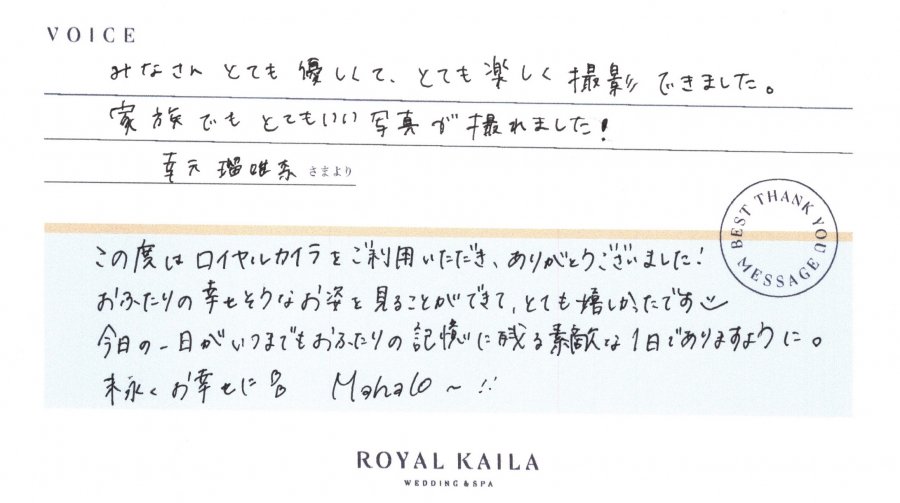 VOICE
みなさん とても 優しくて、とても 楽しく 撮影 できました。
家族 でも とてもいい 写真が 撮れました!
幸元 瑠唯奈 さまより
BEST THANK YOU MESSAGE
この度は ロイヤルカイラを ご利用いただき、ありがとうございました!
おふたりの 幸せそうな お姿を 見ることができて、とても 嬉しかったです
今日の一日が いつまでも おふたりの 記憶に 残る 素敵な 1日でありますように。
末永く お幸せに Mahalo ~ !!
ROYAL KAILA
WEDDING & SPA